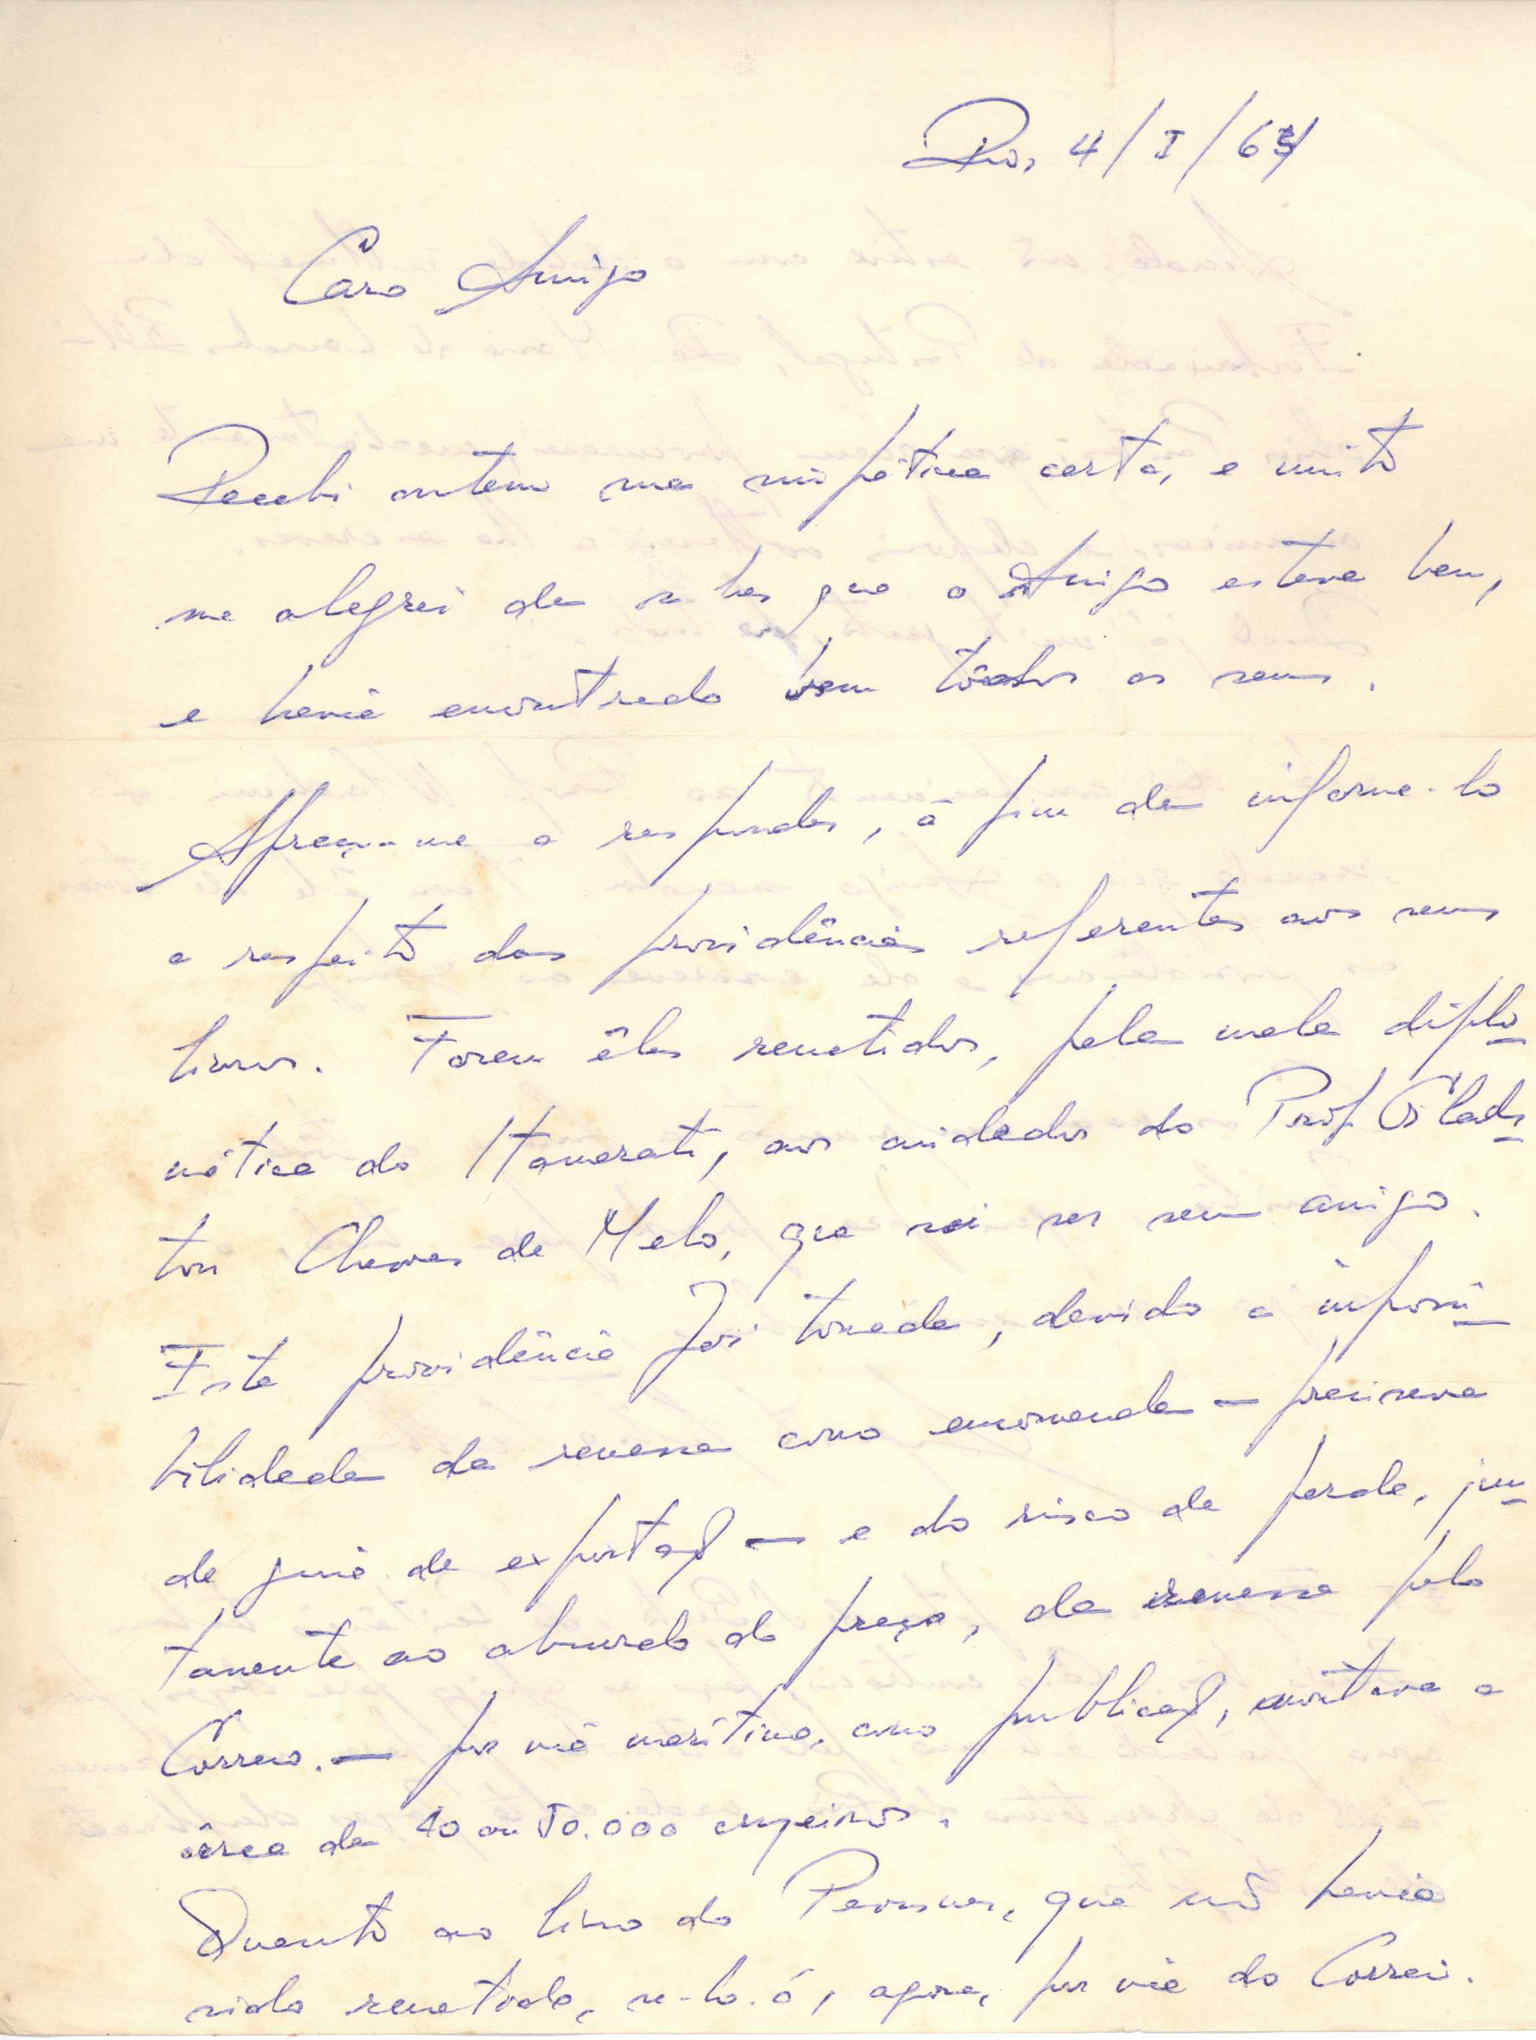 Rio, 4/I/64
Caro Amigo
Recebi ontem sua simpática carta, e muito
me alegrei de saber que o Amigo esteve bem,
e havia encontrado bem todos os seus.
Apresso-me a responder, a fim de informa-lo
a respeito das providências referentes aos seus
livros. Foram êles remetidos, pela mala diplo-
mática do Itamarati, aos cuidados do Prof. Glads-
ton Chaves de Melo, que vai ser seu amigo.
Esta providência foi tomada, devido a impossi-
bilidade da remessa como encomenda — precisava
de guia de exportaç — e do risco de perda, jun-
tamente ao absurdo do preço, da remessa pelo
Correio. — por via marítima, como publicaç, montava a
cerca de 40 ou 50.000 cruzeiros.
Quanto ao livro do Pevsner, que não havia
sido remetido, se-lo-á, agora, por via do Correio.